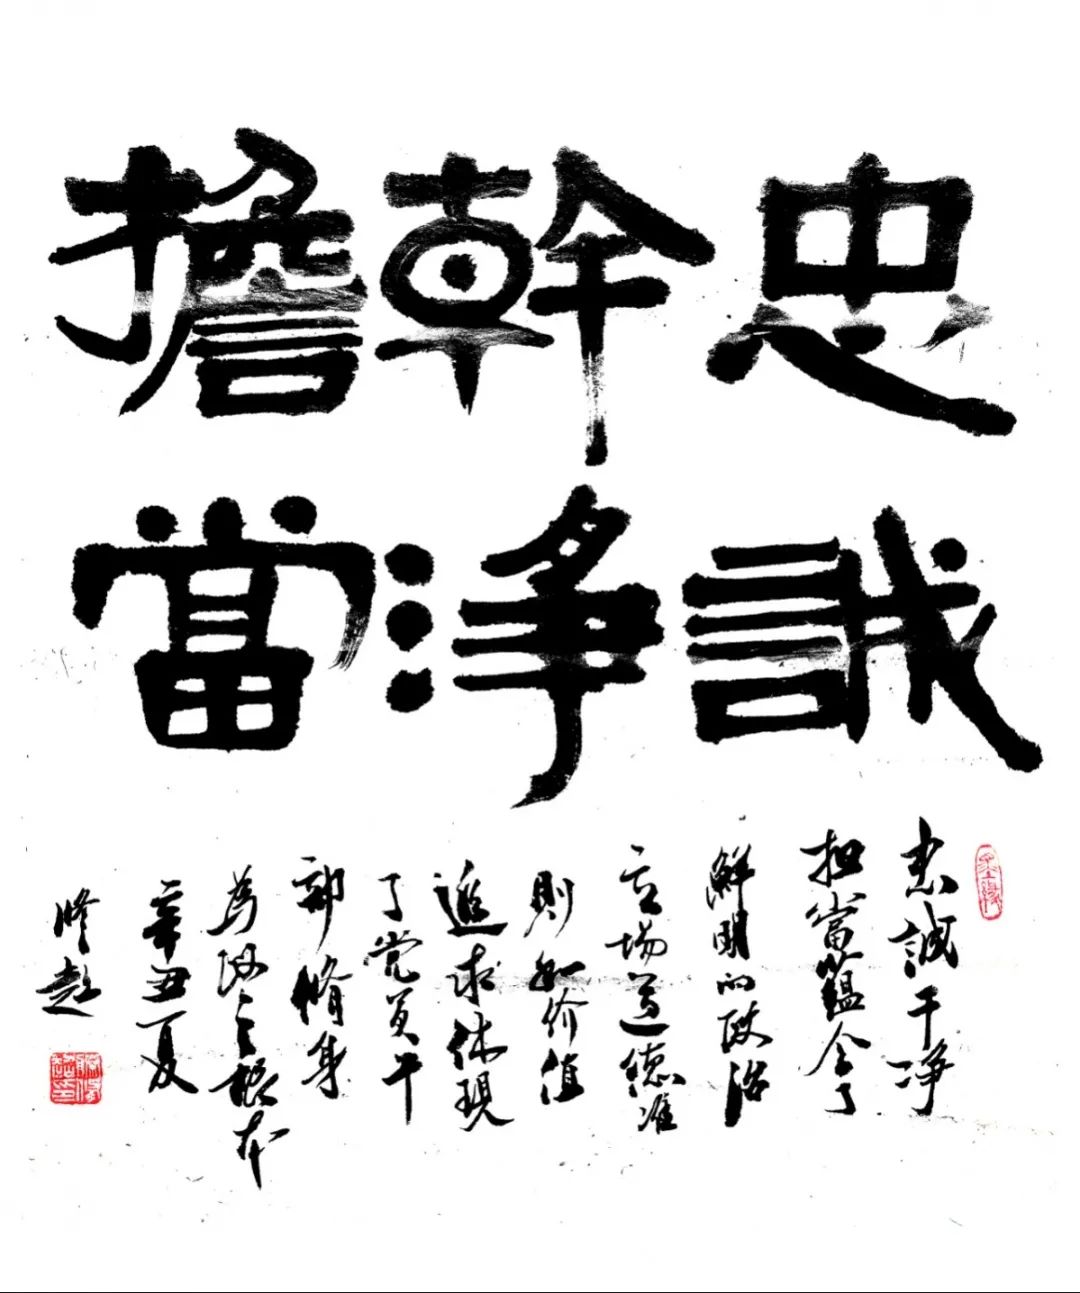 忠誠
幹淨
擔當
忠誠干净
担當蘊含了
鮮明的政治
立場道德准
則和价值
追求体現
了党员干
部脩身
為政之根本
辛丑夏